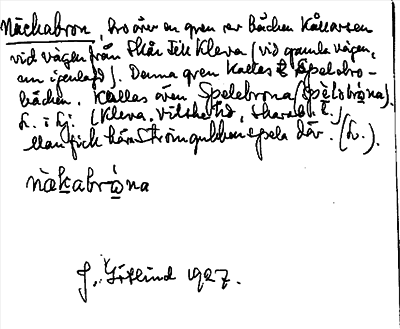 Näckabron, bro över en gren av bäcken Kållarsen
vid vägen från Skår till Kleva (vid gamla vägen,
nu igenlagd). Denna gren kallas Spelebro-
bäcken. Kallas även Spelebrona (spèlabrǫna).
L. i Lj. (Kleva, Vilske hd, Skarab. l.)
Man fick höra Strömgubben spela där. (L.).
nàkabrǫ́na
J. Götlind 1927.